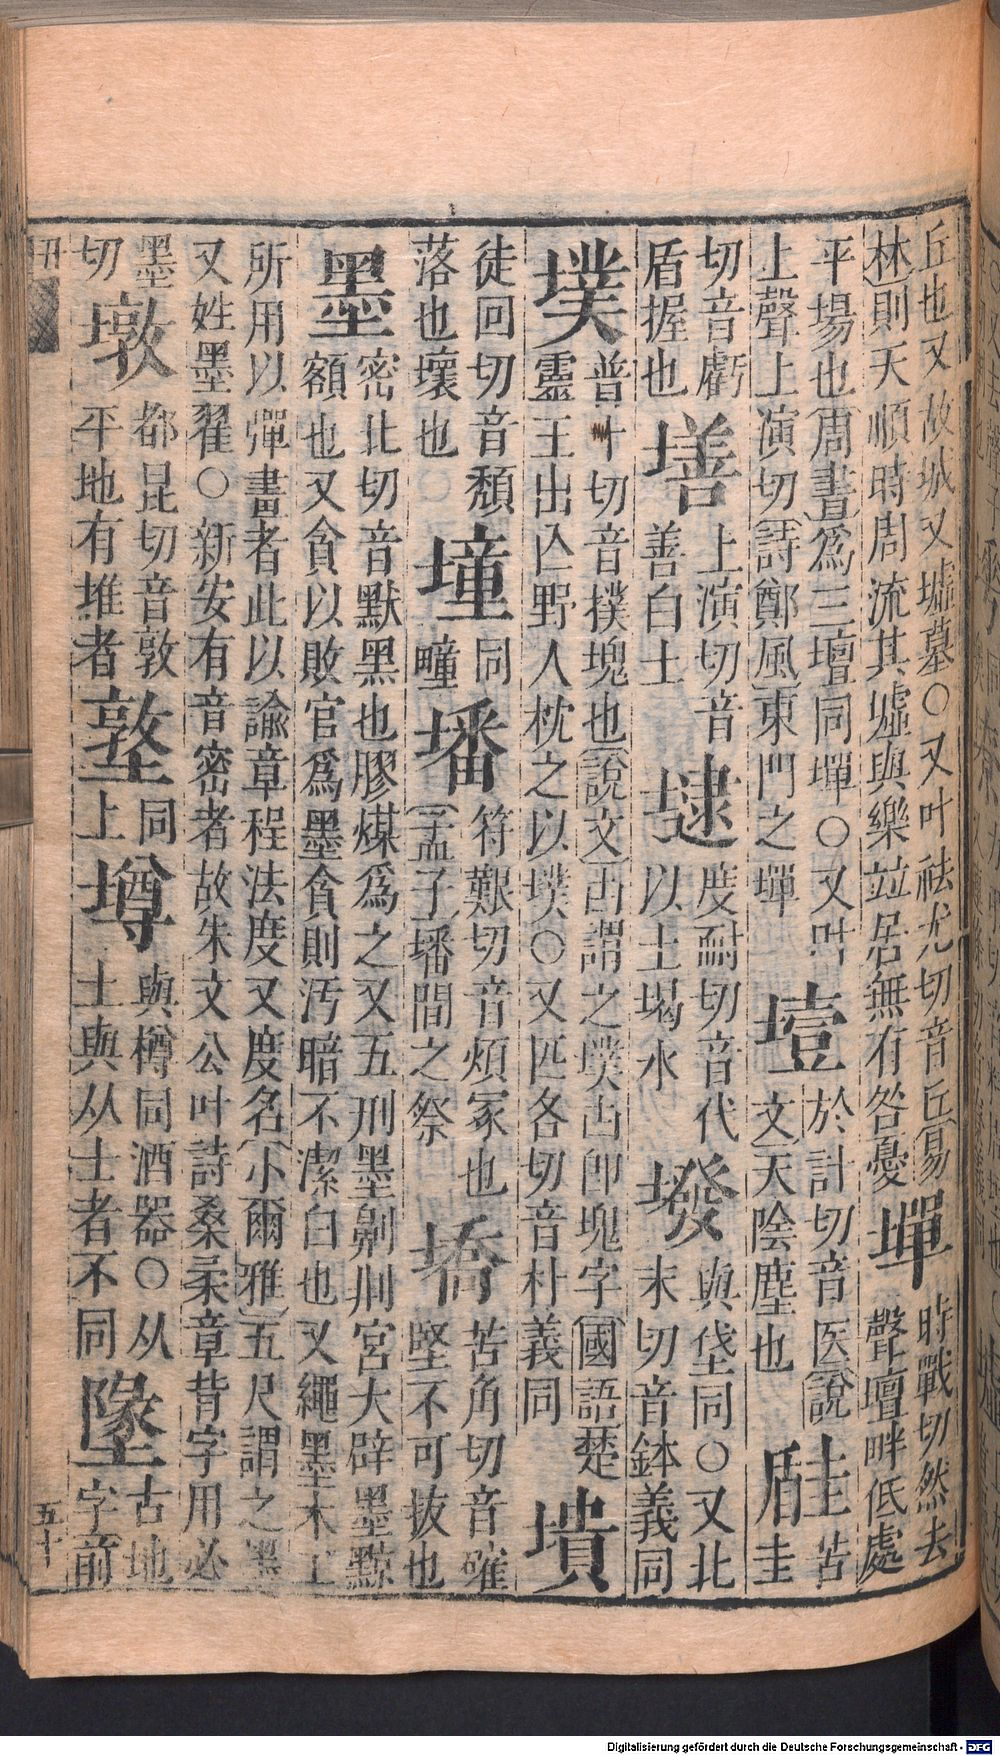 丘也又故城又墟墓〇又叶祛尤切音丘(易
林)則天順時周流其墟與樂竝居無有咎憂
墠
時戰切然去
聲壇畔低處
平場也(周書)爲三壇同墠〇又叶
上聲上演切(詩鄭風)東門之墠
於計切音医(說
文)天陰塵也
苦
圭
切音虧
盾握也
墡
上演切音
善白土
度耐切音代
以土堨水
墢
與垡同〇又北
末切音鉢義同
墣
普卜切音撲塊也(說文)凷謂之墣凷即塊字(國語)楚
靈王出亾野人枕之以墣〇又匹各切音朴義同
墤
徒回切音頹
落也壞也
墥
同
疃
墦
符艱切音煩冢也
(孟子)墦間之祭
墧
苦角切音確
堅不可拔也
墨
密北切音默黑也膠煤爲之又五刑墨劓剕宮大辟墨黥
額也又貪以敗官爲墨貪則汚暗不潔白也又繩墨木工
所用以彈畫者此以諭章程法度又度名(小爾雅)五尺謂之墨
又姓墨翟〇新安有音密者故朱文公叶詩桑柔章背字用必
墨
切
墩
都昆切音敦
平地有堆者
墪
同
上
墫
與樽同酒器〇从
土與从士者不同
墬
古地
字前
五十
Digitalisierung gefördert durch die Deutsche Forschungsgemeinschaft - DFG